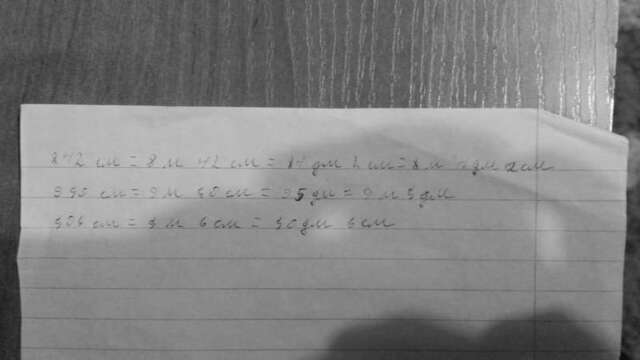 842 см = 8 м 42 см = 84 дм 2 см = 8 м 4 дм 2 см
950 см = 9 м 50 см = 95 дм = 9 м 5 дм
506 см = 5 м 6 см = 50 дм 6 см